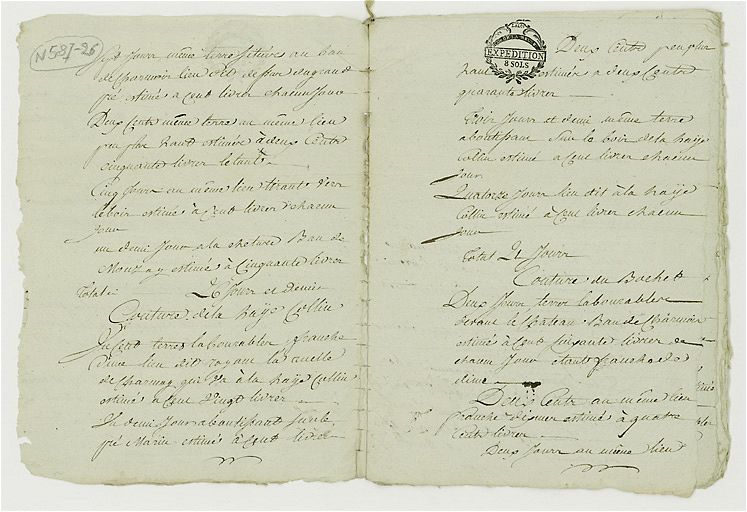 N 587-26
Sept Jours même terre située au ban
de Charmoir lieu dit
pré estimé à Cent livres chacun Jour
Deux Cents même terre au même lieu
peu plus haut estimée à deux Cents
cinquante livres
Cinq Jours au même lieu tirant vers
le bois estimés à Cent livres chacun
Jour
un demi Jour a la Ban de
Mouzay estimé à Cinquante livres
Total Jours et demie
Couture de la haye Collin
terres labourables franche
Dime lieu dit royant la ruelle
de Charmoy qui va à la haye Collin
estimés à Cent Vingt livres
Un demi Jour aboutissant sur le
pré Marie estimé à Cent livres
EXPEDITION
8 SOLS
Deux Cents peu plus
haut estimées à deux Cents
quarante livres
Trois Jours et demi même terre
aboutissant sur le bois de la haye
Collin estimé à Cent livres chacun
Jour
Quatorze Jours lieu dit à la haye
Collin estimé à Cent livres chacun
Jour
Total Jours
Couture du Bochet
Deux Jours terres labourables
devant le Château Ban de Charmoir
estimés à Cent soixante livres
chacun Jour étant franche de
dime
Deux Cents au même lieu
franche Dime estimé à quatre
Cents livres
Deux Jours au même lieu